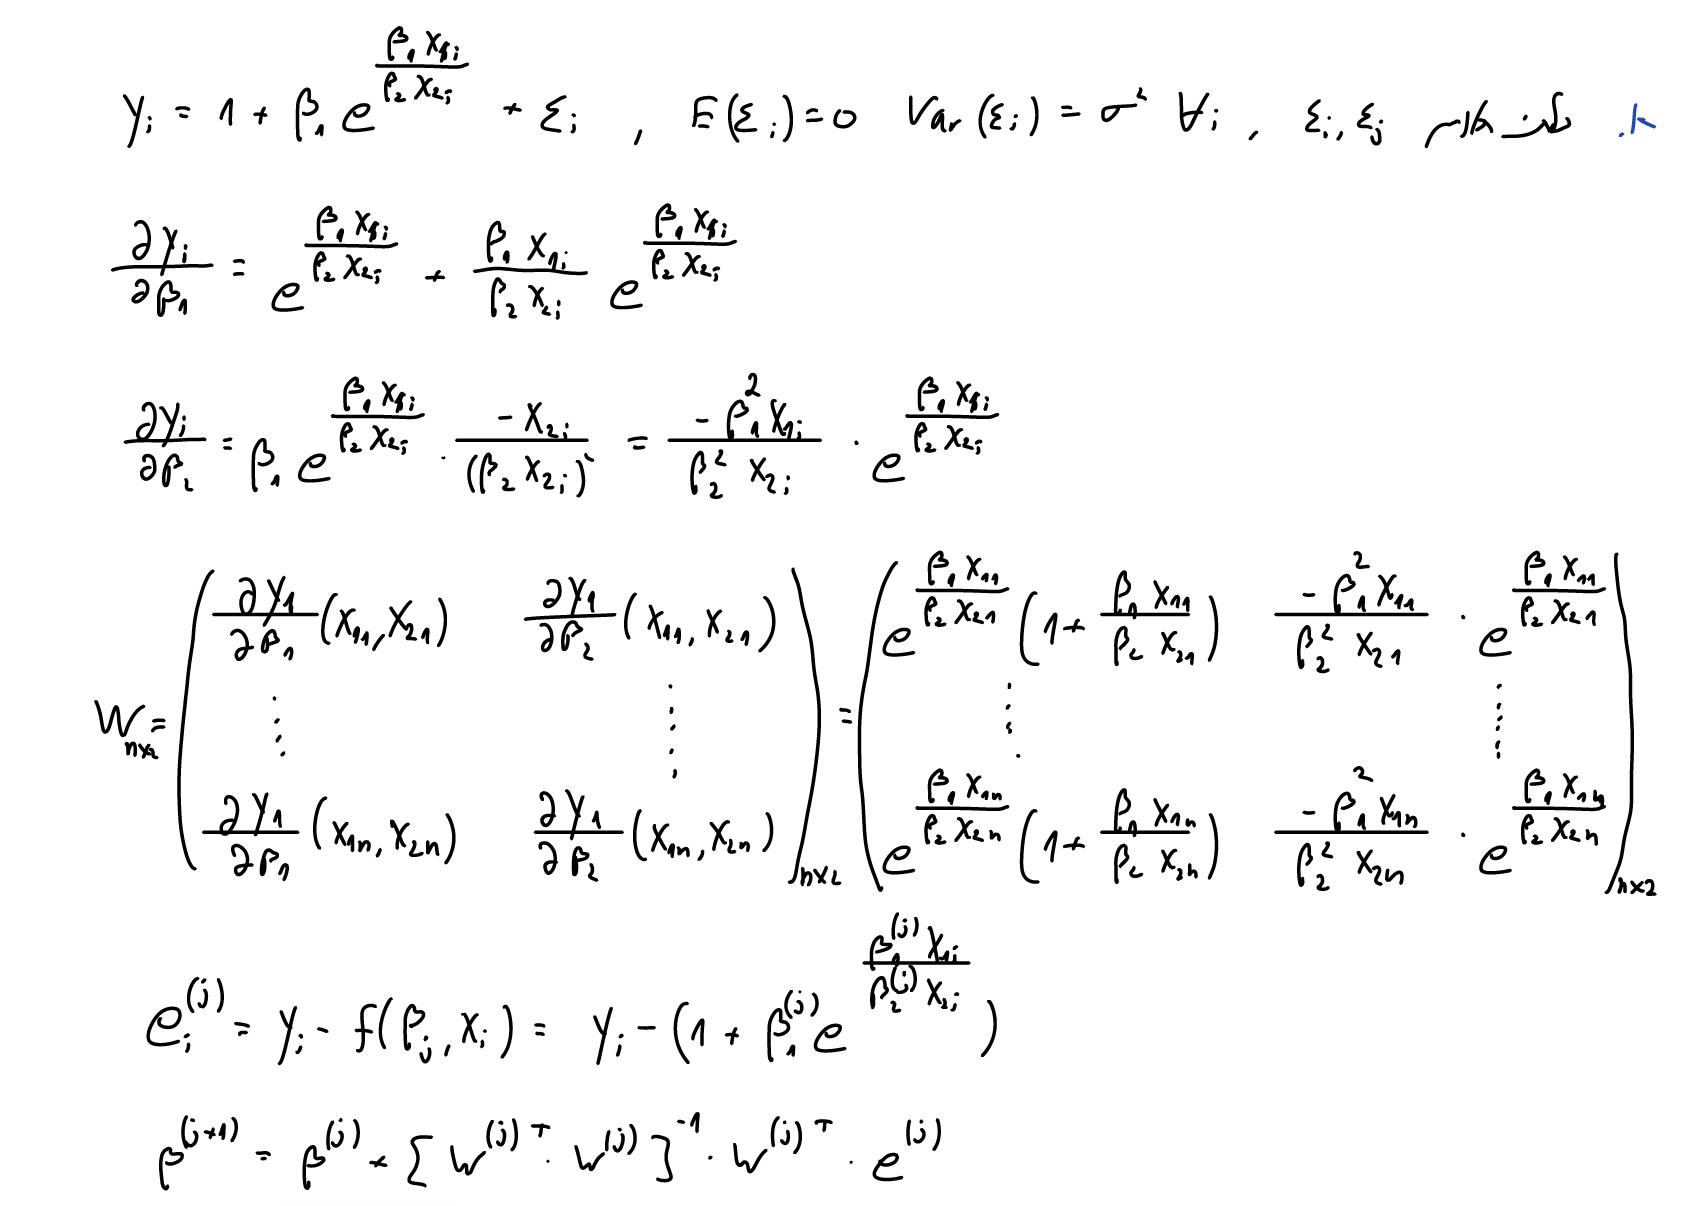 א. y_i = 1 + β_1 e^{\frac{β_1 x_{1i}}{β_2 x_{2i}}} + ε_i , E(ε_i) = 0 Var(ε_i) = σ² ∀i , ε_i, ε_j
\frac{∂y_i}{∂β_1} = e^{\frac{β_1 x_{1i}}{β_2 x_{2i}}} + \frac{β_1 x_{1i}}{β_2 x_{2i}} e^{\frac{β_1 x_{1i}}{β_2 x_{2i}}}
\frac{∂y_i}{∂β_2} = β_1 e^{\frac{β_1 x_{1i}}{β_2 x_{2i}}} · \frac{-x_{2i}}{(β_2 x_{2i})^2} = \frac{-β_1^2 x_{1i}}{β_2^2 x_{2i}} · e^{\frac{β_1 x_{1i}}{β_2 x_{2i}}}
W_{n×2} = \begin{pmatrix} \frac{∂y_1}{∂β_1}(x_{11}, x_{21}) & \frac{∂y_1}{∂β_2}(x_{11}, x_{21}) \\ ⋮ & ⋮ \\ \frac{∂y_1}{∂β_1}(x_{1n}, x_{2n}) & \frac{∂y_1}{∂β_2}(x_{1n}, x_{2n}) \end{pmatrix}_{n×2} = \begin{pmatrix} e^{\frac{β_1 x_{11}}{β_2 x_{21}}}(1 + \frac{β_1 x_{11}}{β_2 x_{21}}) & \frac{-β_1^2 x_{11}}{β_2^2 x_{21}} · e^{\frac{β_1 x_{11}}{β_2 x_{21}}} \\ ⋮ & ⋮ \\ e^{\frac{β_1 x_{1n}}{β_2 x_{2n}}}(1 + \frac{β_1 x_{1n}}{β_2 x_{2n}}) & \frac{-β_1^2 x_{1n}}{β_2^2 x_{2n}} · e^{\frac{β_1 x_{1n}}{β_2 x_{2n}}} \end{pmatrix}_{n×2}
e_i^{(j)} = y_i - f(β_j, x_i) = y_i - (1 + β_1^{(j)} e^{\frac{β_1^{(j)} x_{1i}}{β_2^{(j)} x_{2i}}})
β^{(j+1)} = β^{(j)} + [W^{(j)T} · W^{(j)}]^{-1} · W^{(j)T} · e^{(j)}